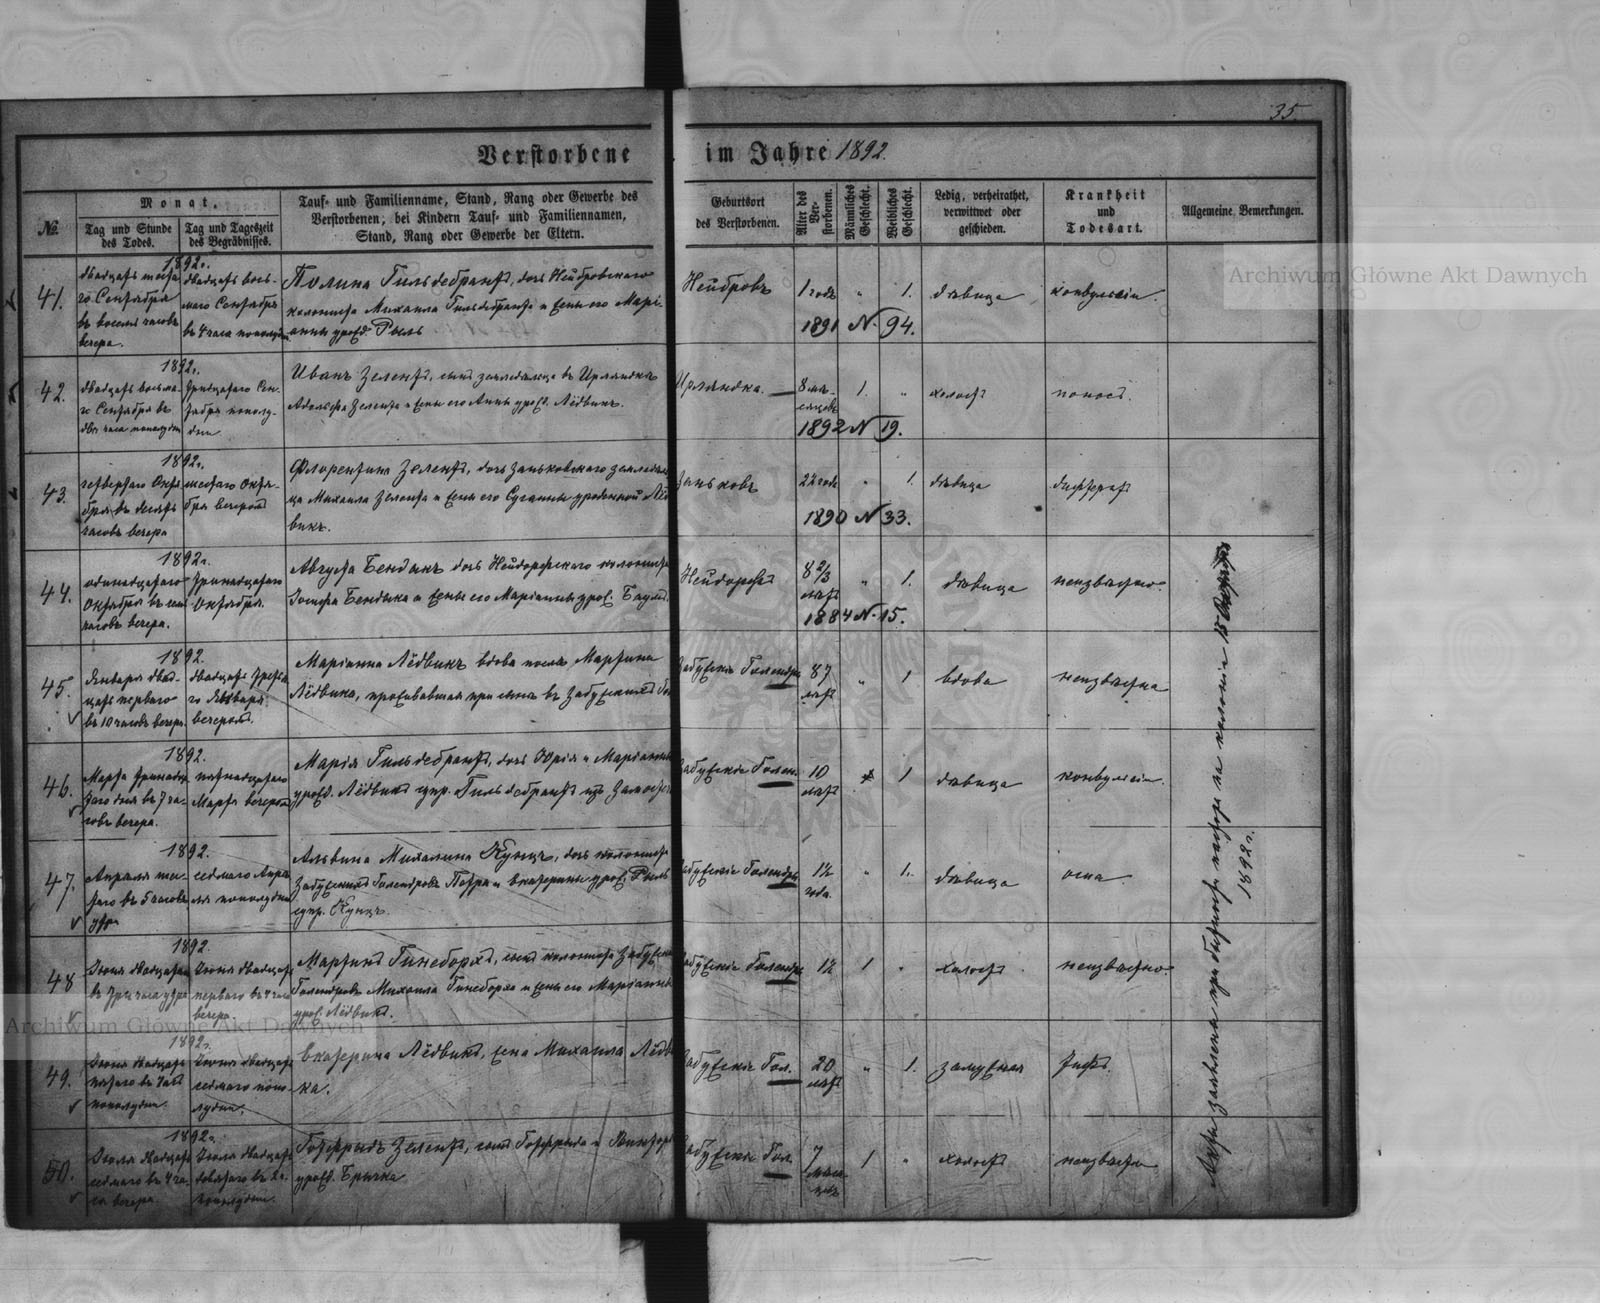 35
Verstorbene im Jahre 1892.
№
Monat.
Tag und Stunde des Todes.
Tag und Tageszeit des Begräbnisses.
Tauf- und Familienname, Stand, Rang oder Gewerbe des
Verstorbenen; bei Kindern Tauf- und Familiennamen,
Stand, Rang oder Gewerbe der Eltern.
Geburtsort
des Verstorbenen.
Alter des Verstorbenen.
Männliches Geschlecht.
Weibliches Geschlecht.
Ledig, verheirathet,
verwittwet oder
geschieden.
Krankheit
und
Todesart.
Allgemeine Bemerkungen.
Archiwum Główne Akt Dawnych
41.
1892г.
двадцать шеста-
го Сентября
въ восемь часовъ
вечера.
двадцать вось-
маго Сентября
въ 4 часа пополудни
Полина Гильдебрантъ, дочь Нейбровскаго
колониста Михаила Гильдебранта и жены его Марі-
анны урожд. Рыль
Нейбровъ
1 годъ
"
1.
дѣвица
конвульсіи.
1891 N. 94.
42.
1892г.
двадцать восьма-
го Сентября въ
два часа пополудни
Тридцатаго Сен-
тября пополу-
дни
Иванъ Зелентъ, сынъ земледѣльца въ Ирляндкѣ
Адольфа Зелента и жены его Анны урожд. Лёдвикъ.
Ирляндка.
8 мѣ-
сяцевъ
1.
"
холостъ
поносъ.
1892 N 19.
43.
1892г.
четвертаго Октя-
бря въ десять
часовъ вечера
шестаго Октя-
бря вечеромъ
Флорентина Зелентъ, дочь Заньковскаго земледѣль-
ца Михаила Зелента и жены его Сузанны урожденной Лёд-
викъ.
Заньковъ
22 года
"
1.
дѣвица
дифтеритъ
1890 N 33.
44.
1892г.
одинадцатаго
Октября въ семь
часовъ вечера.
Тринадцатаго
Октября.
Августа Бендыкъ дочь Нейдорфскаго колониста
Іосифа Бендыка и жены его Маріанны урож. Баумъ.
Нейдорфъ
8 2/3
лѣтъ
"
1.
дѣвица
неизвѣстно.
1884 N. 15.
45.
1892.
Января двад-
цать перваго
въ 10 часовъ вечера
двадцать третья-
го Января
вечеромъ.
Маріанна Лёдвикъ вдова послѣ Мартина
Лёдвика, проживавшая при сынѣ въ Забужскихъ Гол
Забужскія Голендры
87
лѣтъ
"
1
вдова
неизвѣстна
46.
1892.
Марта тринадца-
таго дня въ 7 ча-
совъ вечера.
пятнадцатаго
Марта вечеромъ
Марія Гильдебрантъ, дочь Юрія и Маріанны
урожд. Лёдвикъ супр. Гильдебрантъ изъ
Забужскіе Голен.
10
лѣтъ
1
дѣвица
конвульсіи.
47.
1892.
Апрѣля
въ 5 часовъ
утра
седмаго Апрѣ-
ля пополудни
Альвина Михалина Кунцъ, дочь колониста
Забужскихъ Голендровъ Петра и Екатерины урож. Рыль
супр. Кунцъ.
Забужскіе Голендры
1½
года.
"
1.
дѣвица
оспа
48
1892.
Іюня двадцатаго
въ три часа утра
Іюня двадцать
перваго въ 4 часа
вечера.
Мартинъ Гинеборхъ, сынъ колониста Забужскихъ
Голендровъ Михаила Гинеборха и жены его Маріанны
урож. Лёдвикъ.
Забужскіе Голендры
1½
1
"
холостъ
неизвѣстно.
Archiwum Główne Akt Dawnych
49.
1892г.
Іюня двадцать
пятаго въ 7
пополудни
Іюня двадцать
седмаго попо-
лудни.
Екатерина Лёдвикъ, жена Михаила Лёдви-
ка.
Забужскіе Гол.
20
лѣтъ
"
1.
замужняя
Тифъ.
50.
1892г.
Іюля двадцать
седмаго въ 4 ча-
са вечера
Іюля двадцать
девятаго въ 2 ч.
пополудни.
Готфридъ Зелентъ, сынъ Готфрида и
урожд. Брычка
Забужскіе Гол.
7
мѣся-
цевъ
1
"
холостъ
неизвѣстна
Акты заявлены при бытности пастора на колоніи 15
1892г.